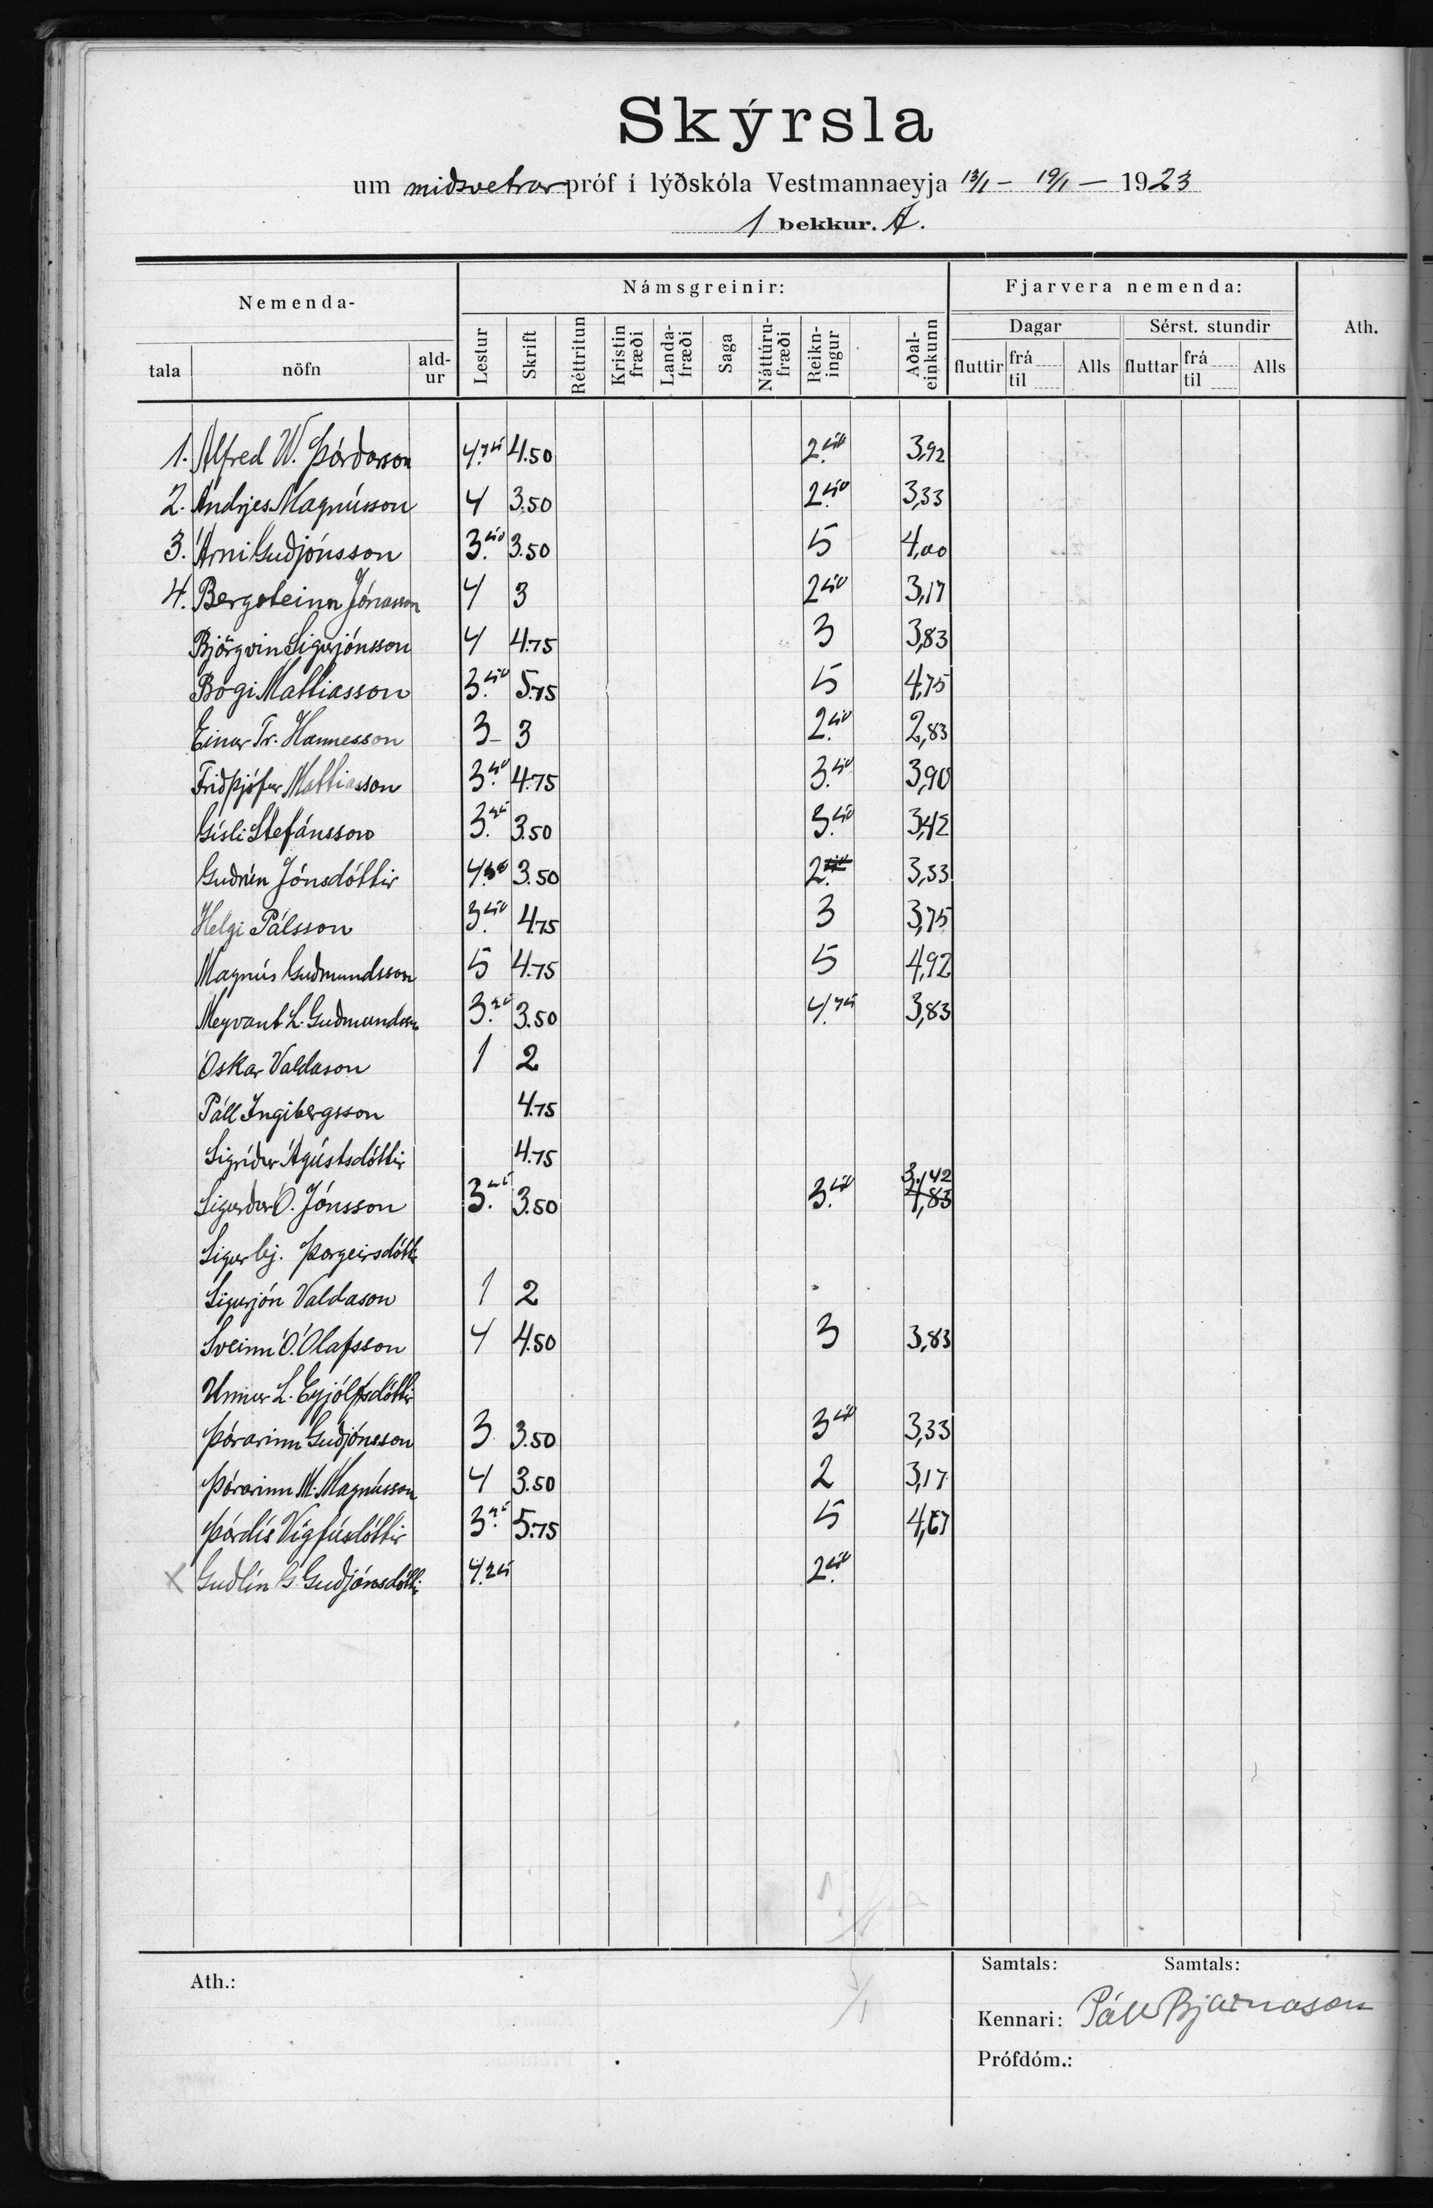 Skýrsla
um miðsvetrar próf í lýðskóla Vestmannaeyja 13/1 - 19/1 - 1923
1 bekkur. A.
Nemenda- Námsgreinir: Fjarvera nemenda: Ath.
Dagar Sérst. stundir
tala nöfn ald-ur Lestur Skrift Réttritun Kristin fræði Landa-fræði Saga Náttúru-fræði Reikn-ingur Aðal-einkunn fluttir frá til Alls fluttar frá til Alls
1. Alfred W. Þórðarson 4.75 4.50 2.50 3,92
2. Andrjes Magnússon 4 3.50 2.50 3,33
3. Árni Guðjónsson 3.50 3.50 5 4,00
4. Bergsteinn Jónasson 4 3 2.50 3,17
Björgvin Sigurjónsson 4 4.75 3 3,83
Bogi Mattiasson 3.50 5.75 5 4,75
Einar Tr. Hannesson 3 - 3 2.50 2,83
Friðþjófur Mattiasson 3.50 4.75 3.50 3,90
Gísli Stefánsson 3.25 3.50 3.50 3,42
Guðrún Jónsdóttir 3.50 2. 3,33
Helgi Pálsson 3.50 4.75 3 3,75
Magnús Guðmundsson 5 4.75 5 4,92
Meyvant L. Guðmundsson 3.25 3.50 4.75 3,83
Oskar Valdason 1 2
Páll Ingibergsson 4.75
Sigríður Ágústsdóttir 4.75
Sigurður O. Jónsson 3.25 3.50 3.50 3.42 4,83
Sigurbj. Þorgeirsdóttir
Sigurjón Valdason 1 2
Sveinn Ó. Ólafsson 4 4.50 3 3,83
Unnur L. Eyjólfsdóttir
Þórarinn Guðjónsson 3 3.50 3.50 3,33
Þórarinn M. Magnússon 4 3.50 2 3,17
Þórdís Vigfúsdóttir 3.25 5.75 5 4,67
X Guðlín G. Guðjónsdóttir 4.25 2.50
Ath.: Samtals: Samtals:
Kennari: Páll Bjarnason
Prófdóm.: